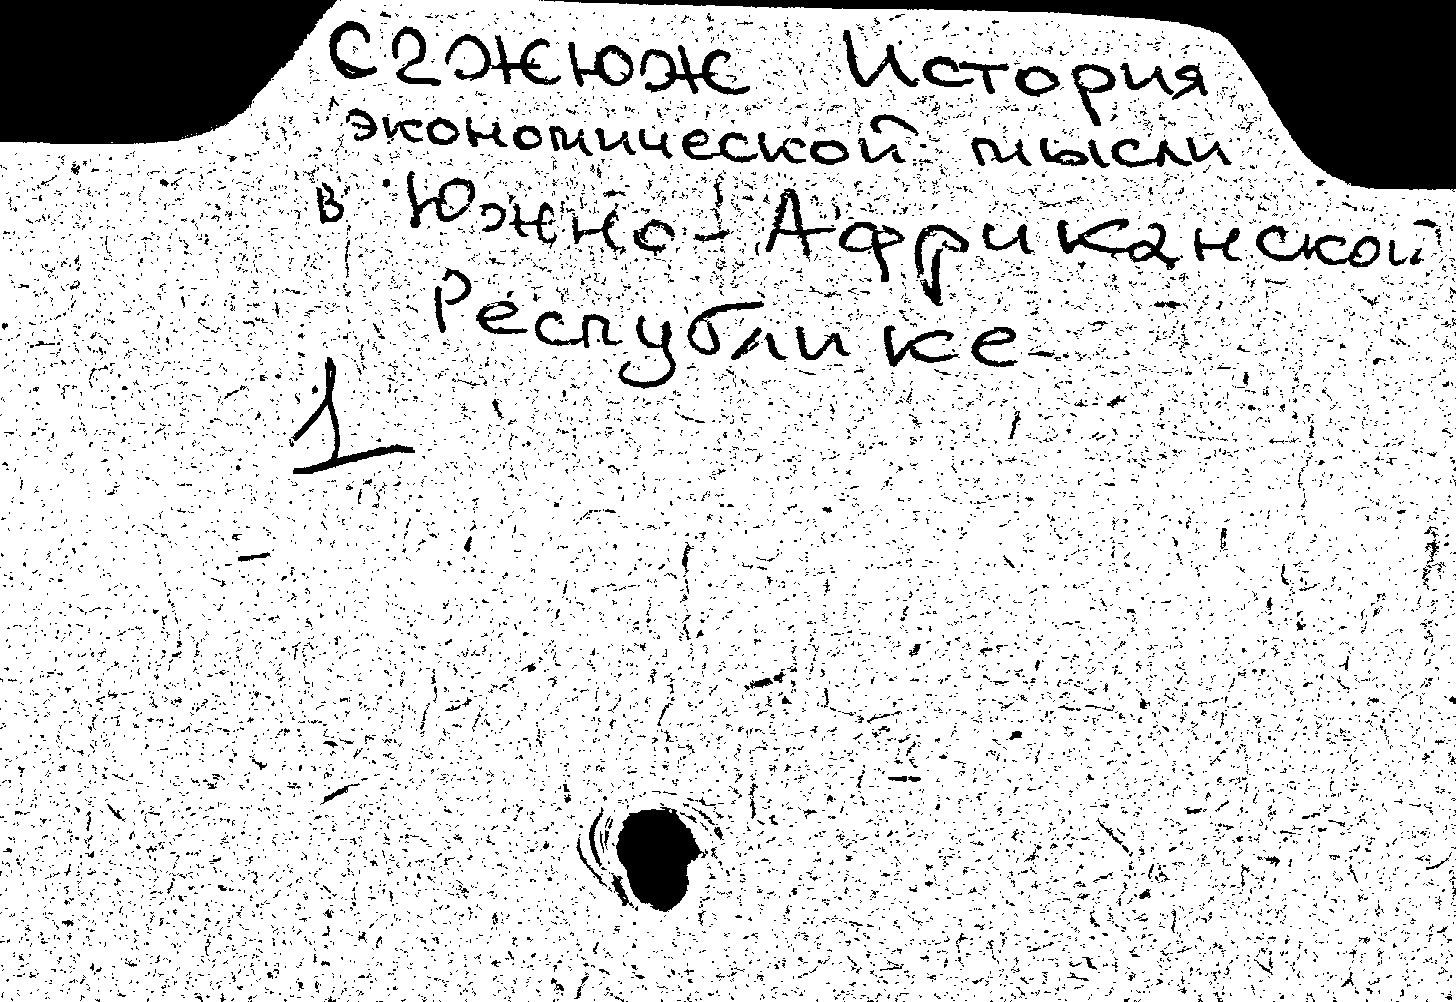 С2ЖЮЖ История
экономической мысли
в Южно-Африканской
Республике
1